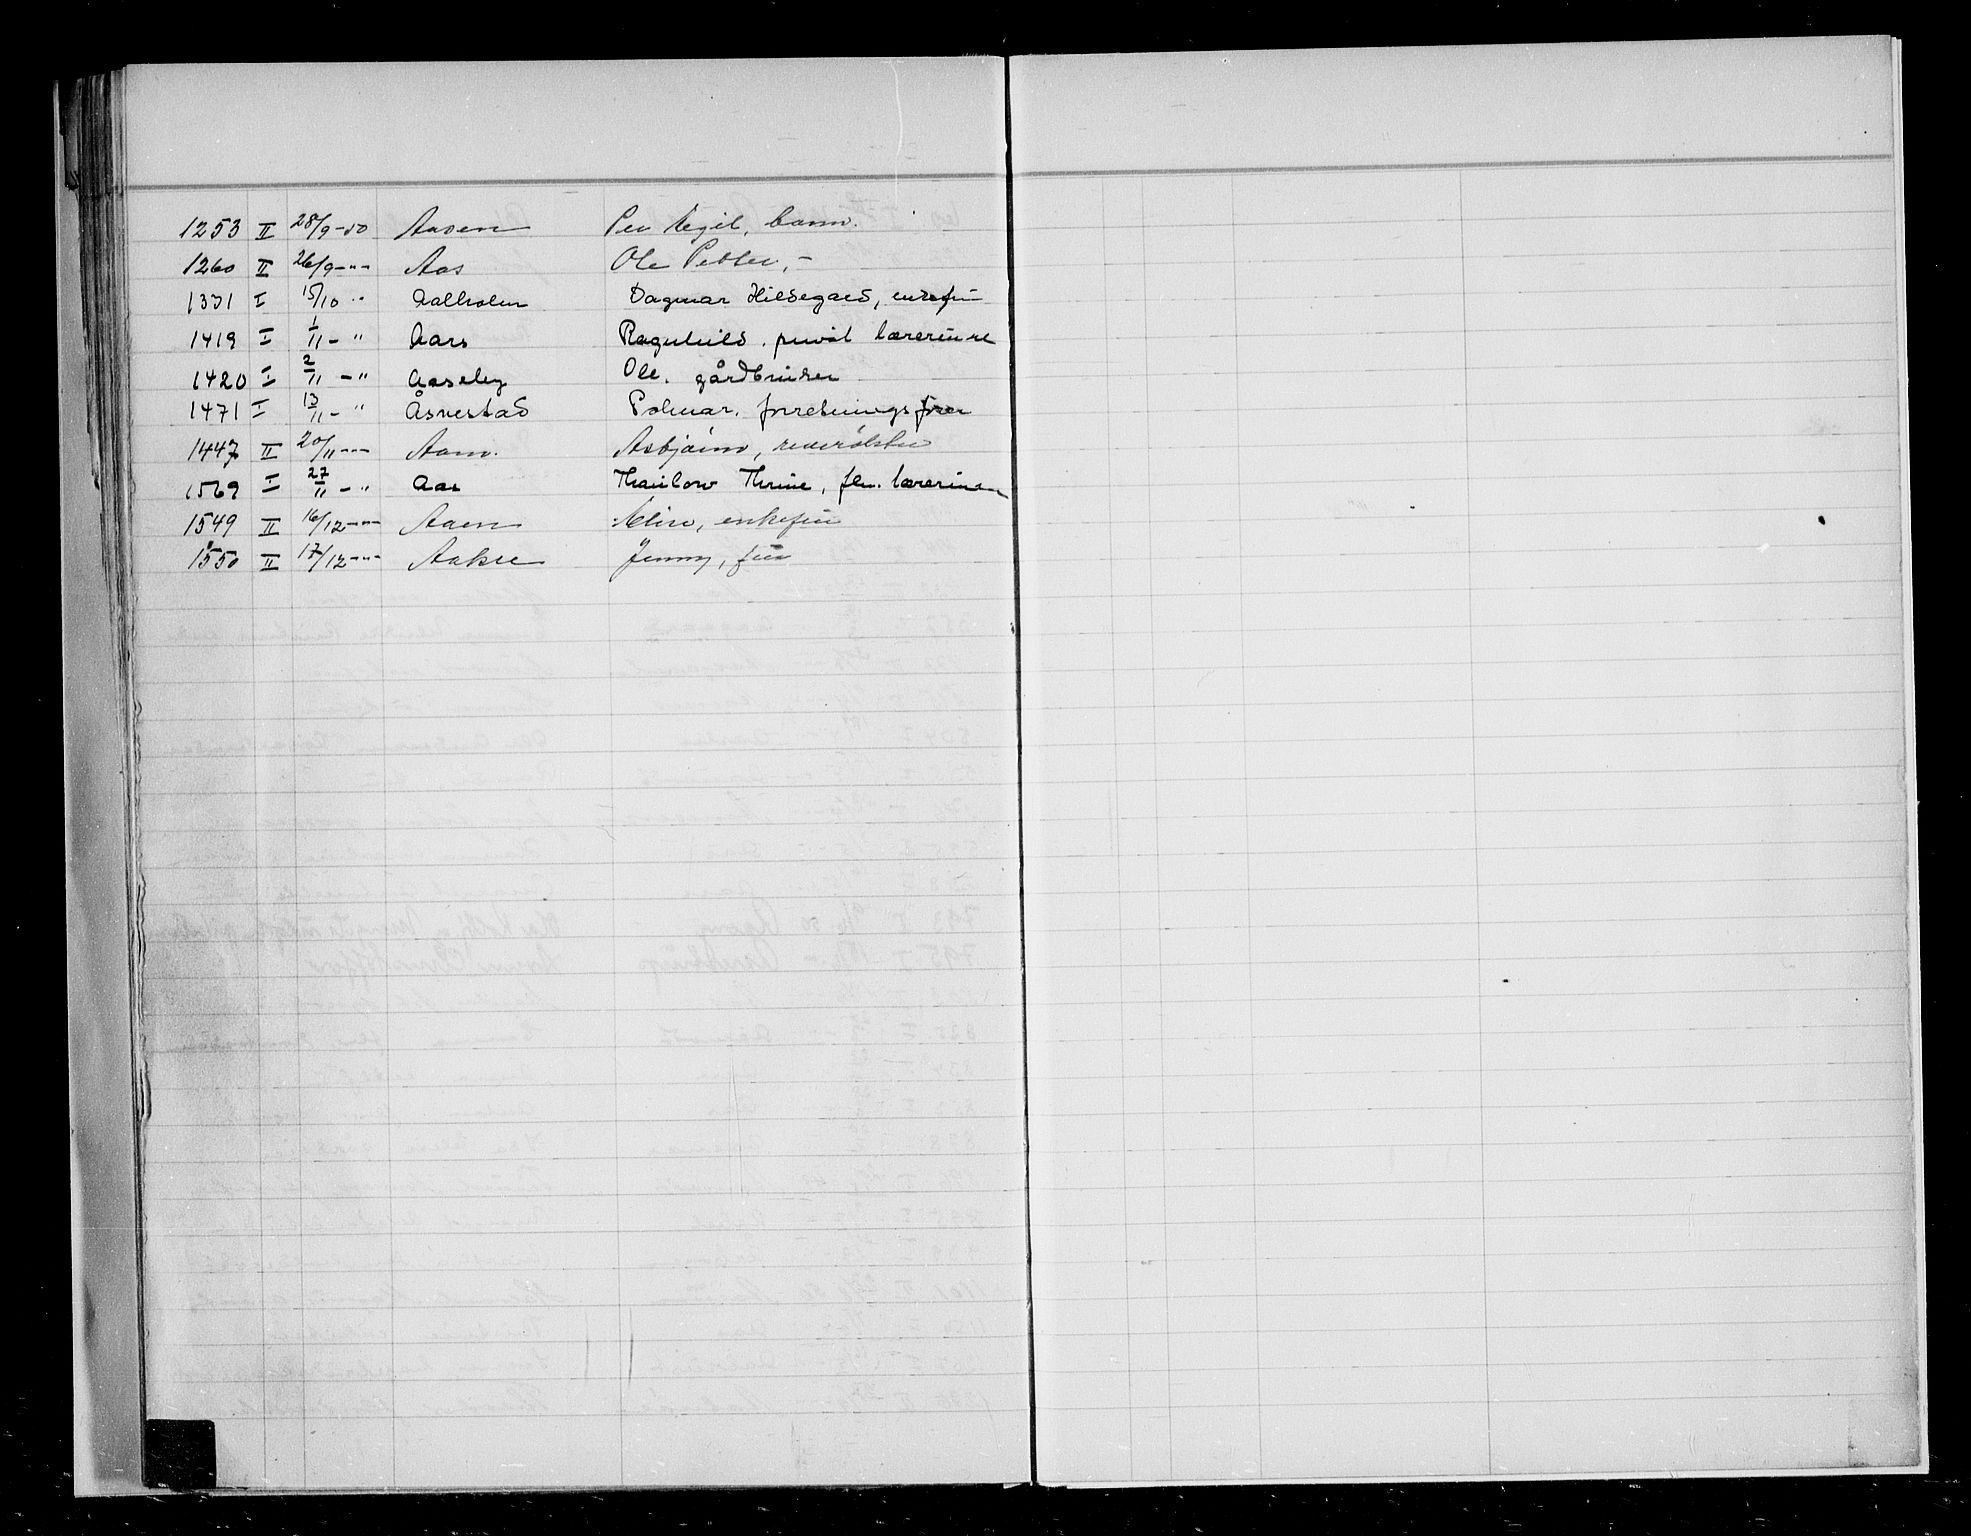 1253 II 28/9-50 Aasen Per Kegil, barn.
1260 II 26/9-"- Aas Ole Petter, -
1331 I 15/10 " Aalholm Dagmar Hildegard, enkefru
1419 I 1/11 - " Aars Ragnhild. privat lærerinne
1420 I 2/11 - " Aaseby Ole. gårdbruker
1471 I 13/11 - " Åsvestad Polmar. forretningsfører
1447 II 20/11 -"- Aam. Asbjørn,
1569 I 27/11 - " Aas Thaulow Thrine, fhv. lærerinne
1549 II 16/12 -"- Aaen Elise, enkefru
1550 II 17/12 -"- Aakre Jenny, frue